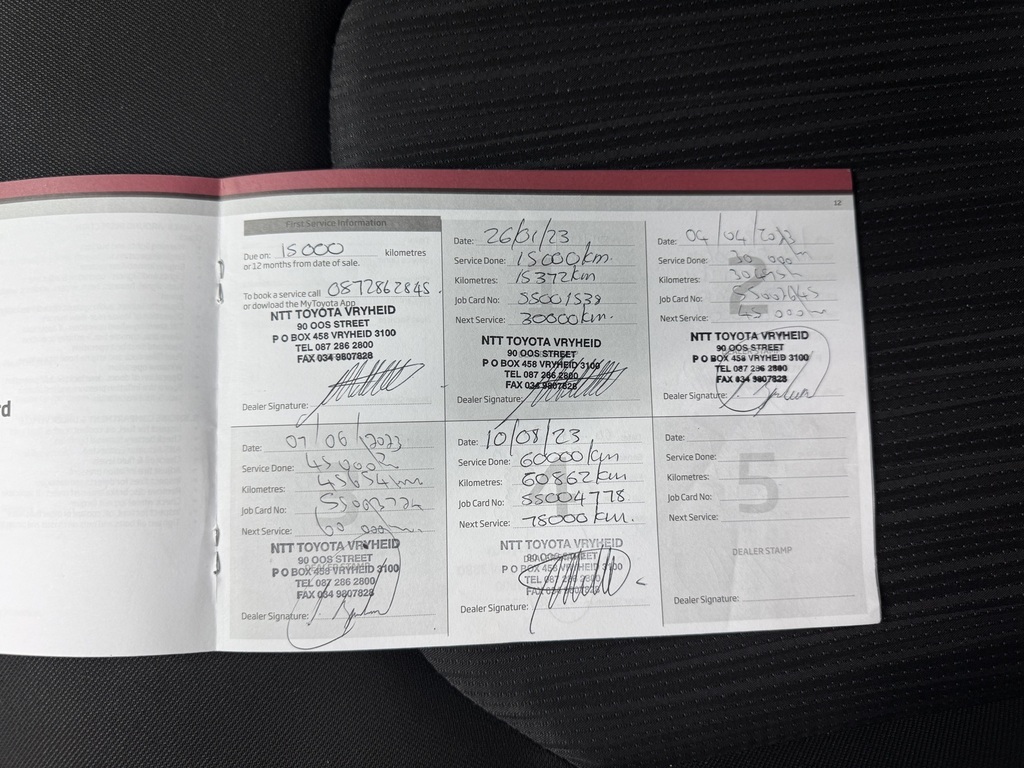 12
First Service Information
Due on: 15000 kilometres
or 12 months from date of sale.
To book a service call 0872862845.
or dowload the MyToyota App
NTT TOYOTA VRYHEID
90 OOS STREET
P O BOX 458 VRYHEID 3100
TEL 087 286 2800
FAX 034 9807828
Dealer Signature:
Date: 26/01/23
Service Done: 15000km.
Kilometres: 15372km
Job Card No: SS001539
Next Service: 30000km.
NTT TOYOTA VRYHEID
90 OOS STREET
P O BOX 458 VRYHEID 3100
TEL 087 286 2800
FAX 034 9807828
Dealer Signature:
Date: 04/04/2023
Service Done: 30 000m
Kilometres:
Job Card No:
Next Service: 45 000m
NTT TOYOTA VRYHEID
90 OOS STREET
P O BOX 458 VRYHEID 3100
TEL 087 286 2800
FAX 034 9807828
Dealer Signature:
Date: 07/06/2023
Service Done:
Kilometres: 45654km
Job Card No:
Next Service:
NTT TOYOTA VRYHEID
90 OOS STREET
P O BOX 458 VRYHEID 3100
TEL 087 286 2800
FAX 034 9807828
Dealer Signature:
Date: 10/08/23
Service Done: 60000km
Kilometres: 60862km
Job Card No: SS004778
Next Service: 75000km.
NTT TOYOTA VRYHEID
90 OOS STREET
P O BOX 458 VRYHEID 3100
TEL 087 286 2800
FAX 034 9807828
Dealer Signature:
Date:
Service Done:
Kilometres:
Job Card No:
Next Service:
5
DEALER STAMP
Dealer Signature: